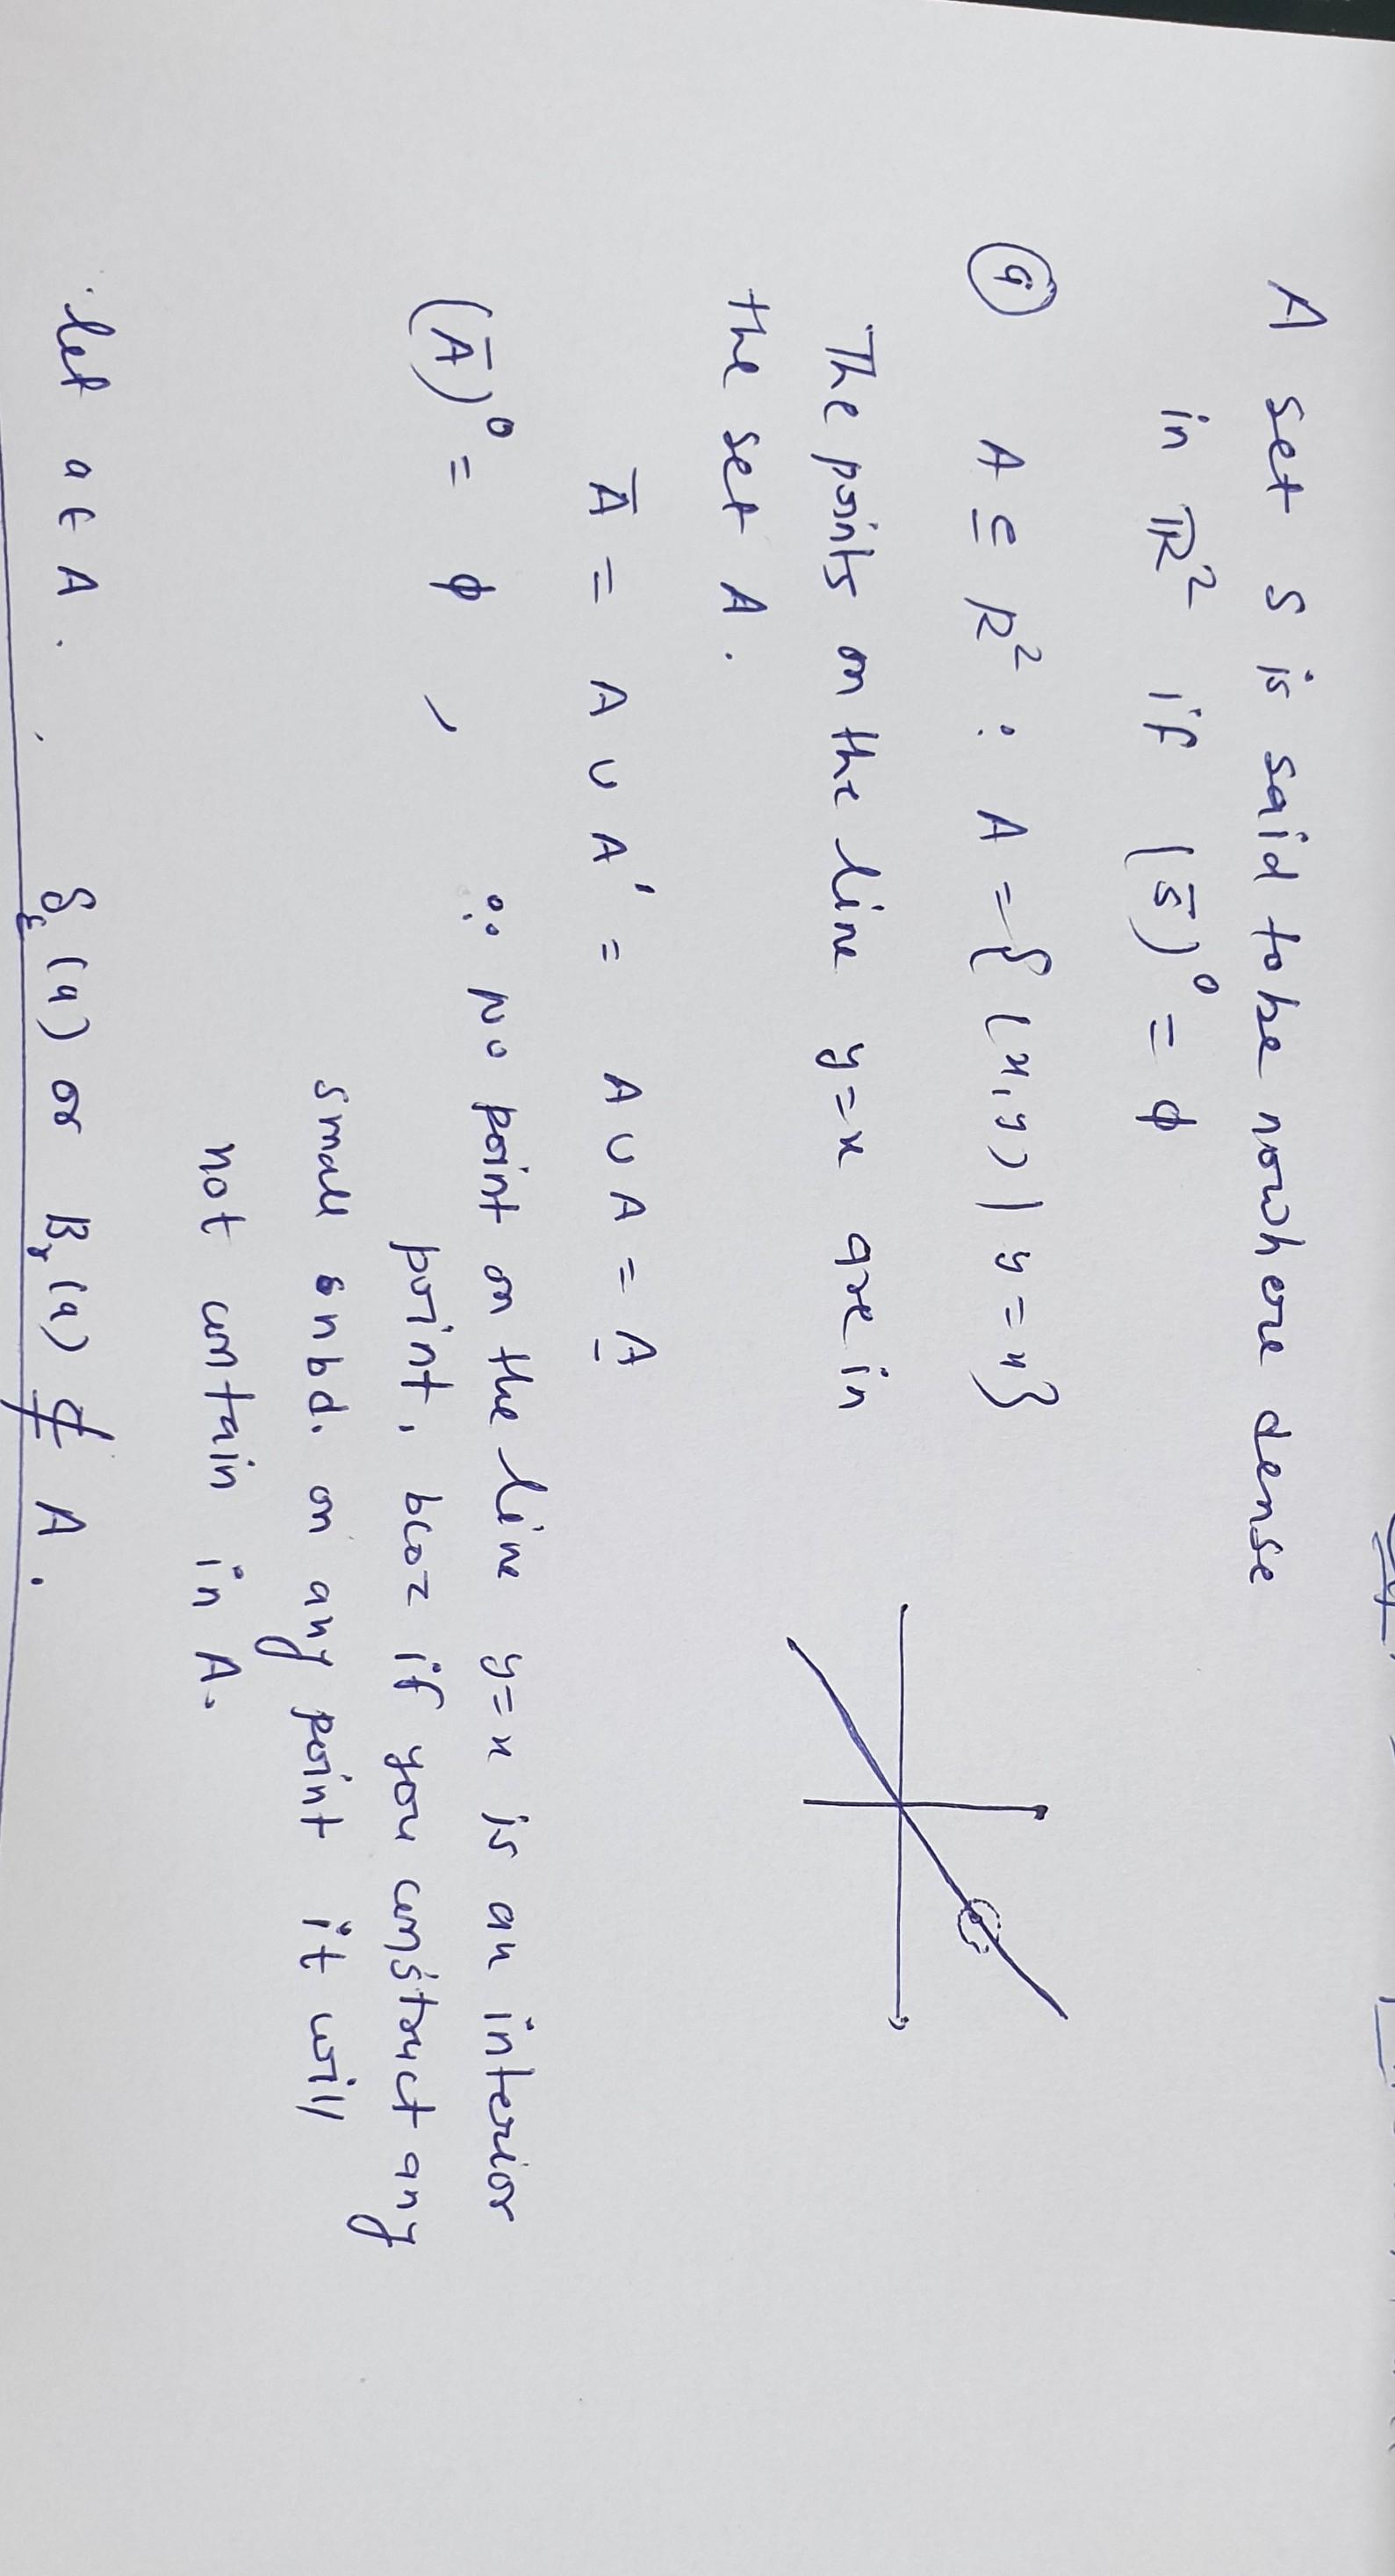 A set S is said to be nowhere dense
in ℝ² if (S̄)⁰ = ϕ
A ⊆ R² : A = {(x,y) | y = x}
The points on the line y=x are in
the set A.
Ā = A ∪ A' = A ∪ A = A
(Ā)⁰ = ϕ , ∵ No point on the line y=x is an interior
point, bcoz if you construct any
small nbd. on any point it will
not contain in A.
let a ∈ A. S_ε(a) or B_r(a) ⊈ A.